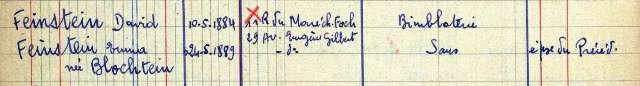 Feinstein David 10.5.1884 R du Maréch. Foch Bimbloterie
29 Av. Eugène Gilbert
Feinstein Emma 24-5.1889 - do Sans épse du Précéd.
née Blochtein